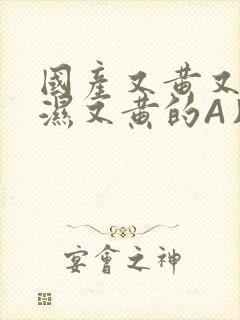 國產又黄又
濕又黄的A
宴會之神